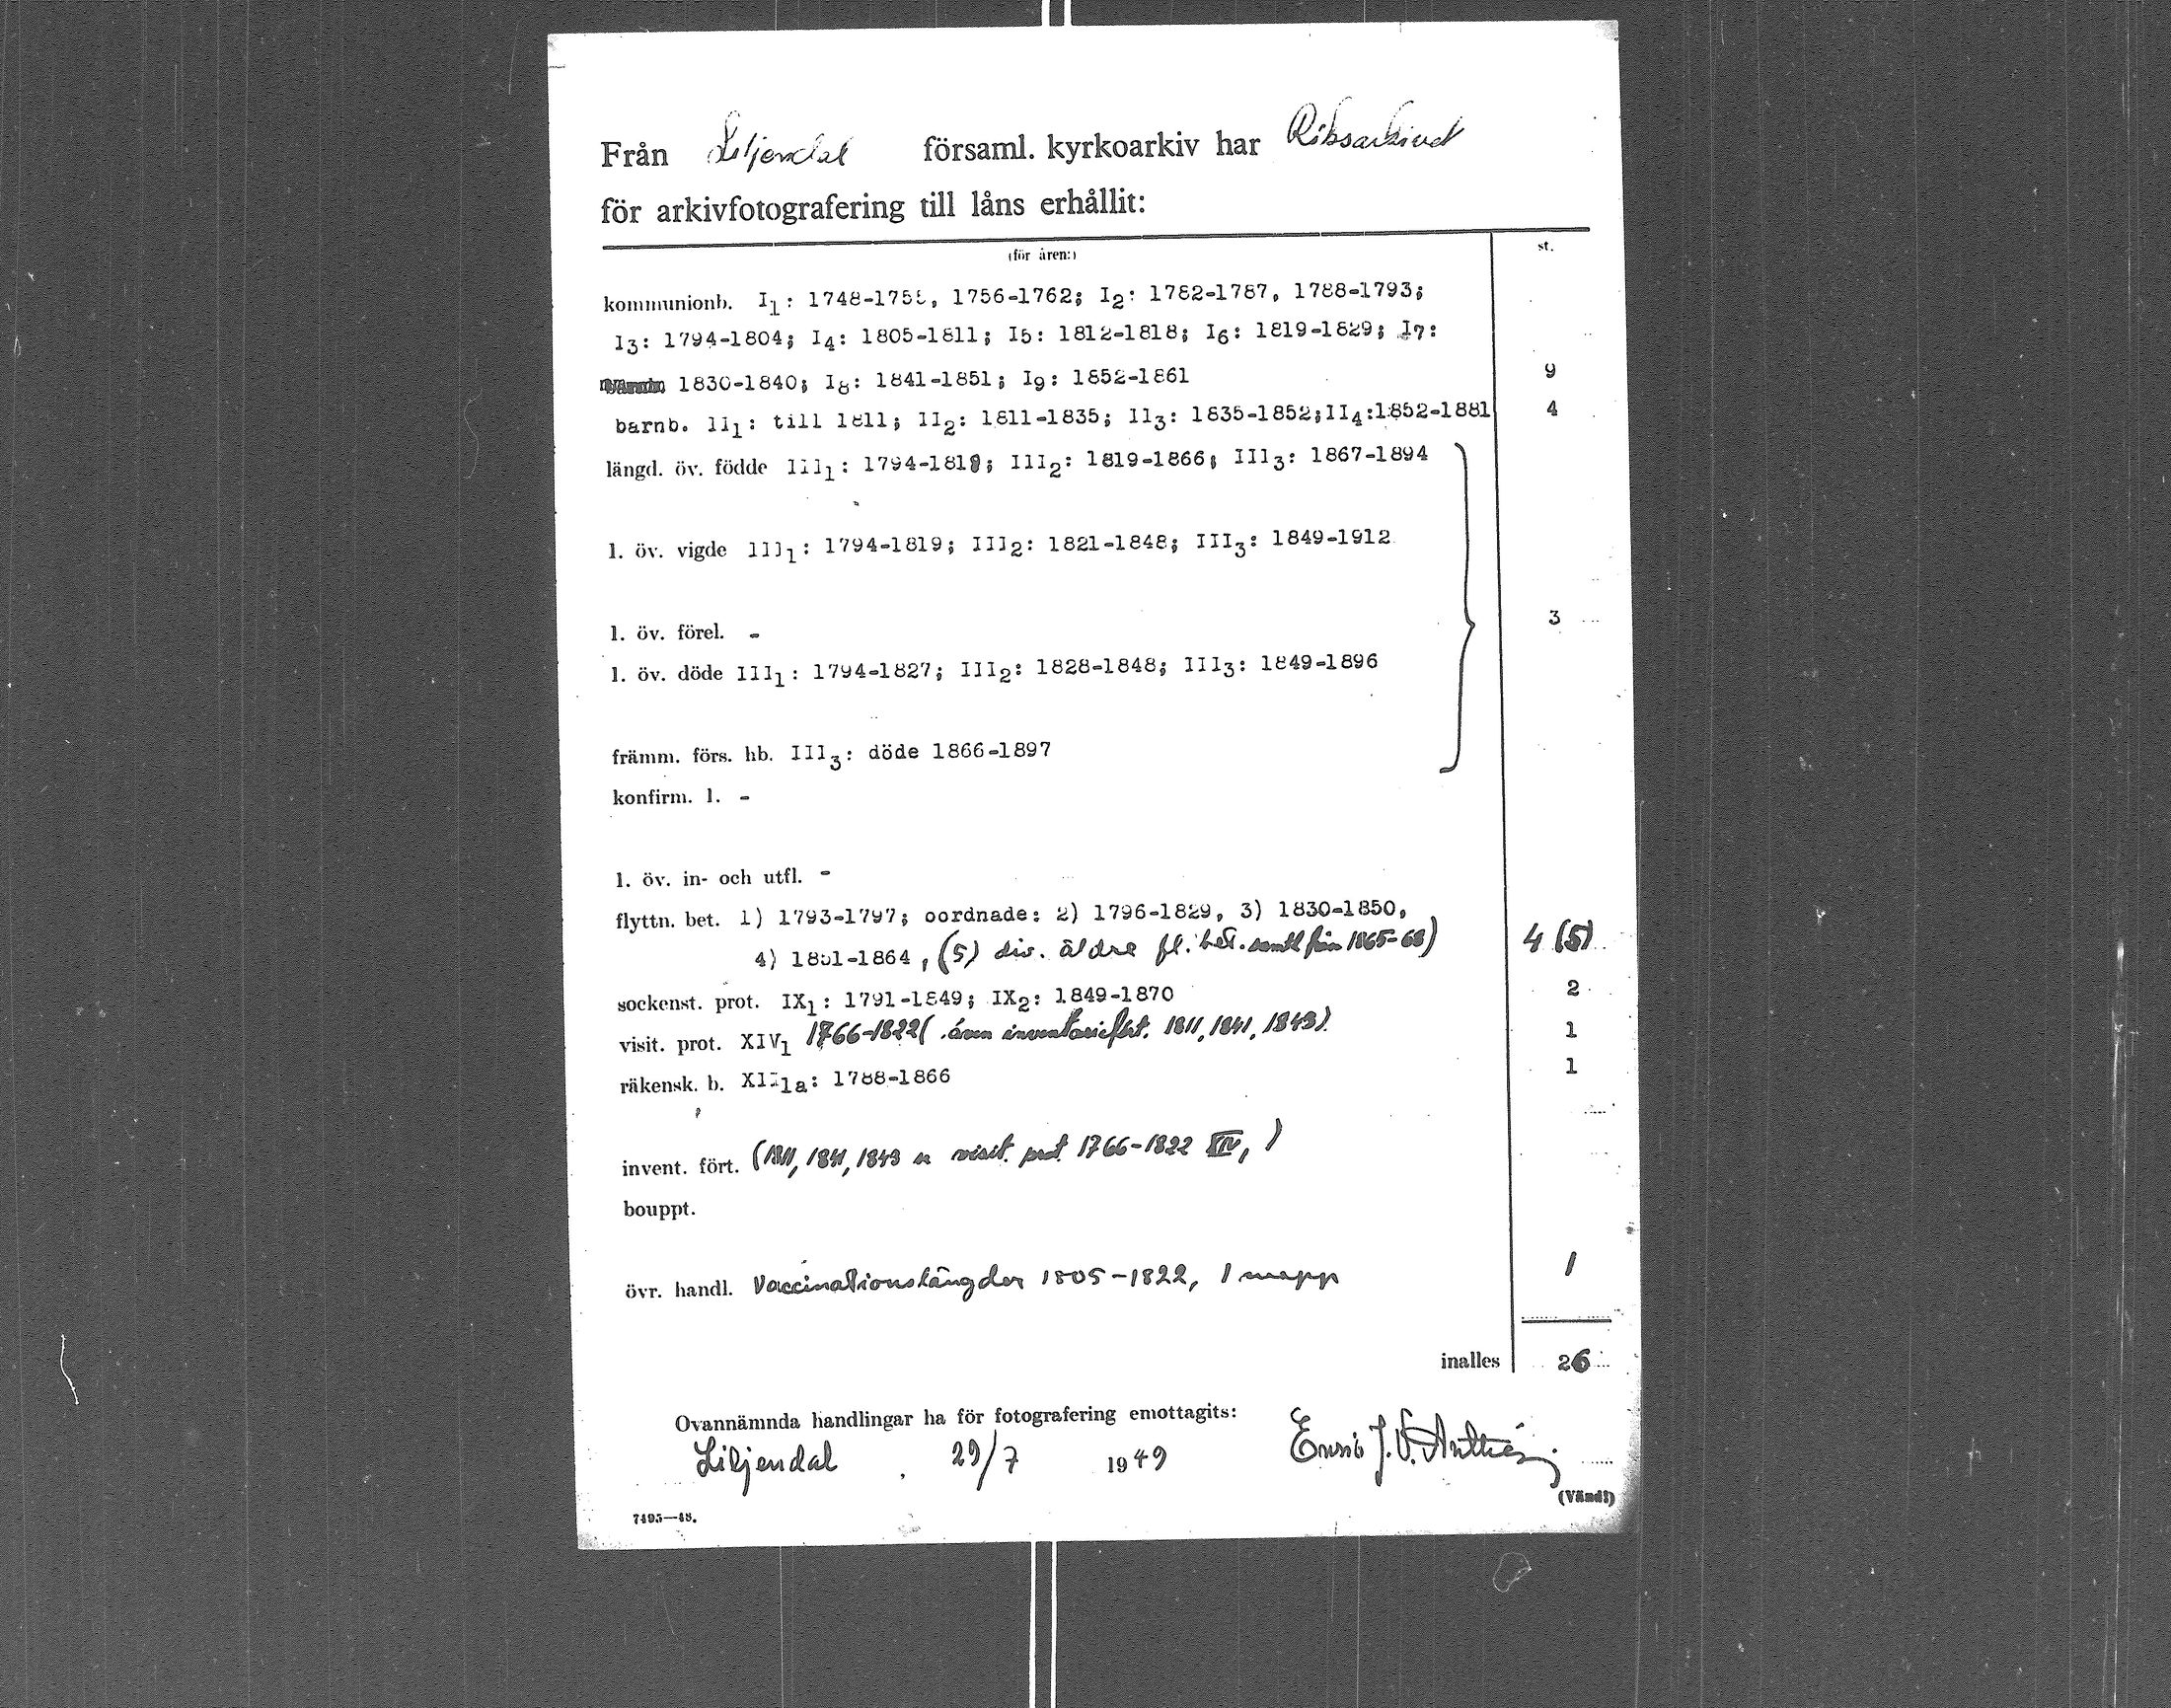 Från Liljendal församl. kyrkoarkiv har Riksarkivet
för arkivfotografering till låns erhållit:
(för åren:) st.
kommunionb. I1: 1748-1755, 1756-1762; I2: 1782-1787, 1788-1793;
I3: 1794-1804; I4: 1805-1811; I5: 1812-1818; I6: 1819-1829; I7:
1830-1840; I8: 1841-1851; I9: 1852-1861 9
barnb. II1: till 1811; II2: 1811-1835; II3: 1835-1852;II4:1852-1881 4
längd. öv. födde III1: 1794-1819; III2: 1819-1866; III3: 1867-1894
l. öv. vigde III1: 1794-1819; III2: 1821-1848; III3: 1849-1912
3
l. öv. förel. -
l. öv. döde III1: 1794-1827; III2: 1828-1848; III3: 1849-1896
främm. förs. hb. III3: döde 1866-1897
konfirm. l. -
l. öv. in- och utfl. -
flyttn. bet. 1) 1793-1797; oordnade: 2) 1796-1829, 3) 1830-1850,
4) 1851-1864, (5) div. äldre fl. bet. samtl från 1865-68) 4 (5)
sockenst. prot. IX1: 1791-1849; IX2: 1849-1870 2
visit. prot. XIV1 1766-1822 (även inventariefört. 1811, 1841, 1843) 1
räkensk. b. XIII1a: 1788-1866 1
invent. fört. (1811, 1841, 1843 visit. prot 1766-1822 XIV1)
bouppt.
övr. handl. Vaccinationslängder 1805-1822, 1 mapp 1
inalles 26
Ovannämnda handlingar ha för fotografering emottagits:
Liljendal 29/7 1949
(Vänd!)
7495—48.